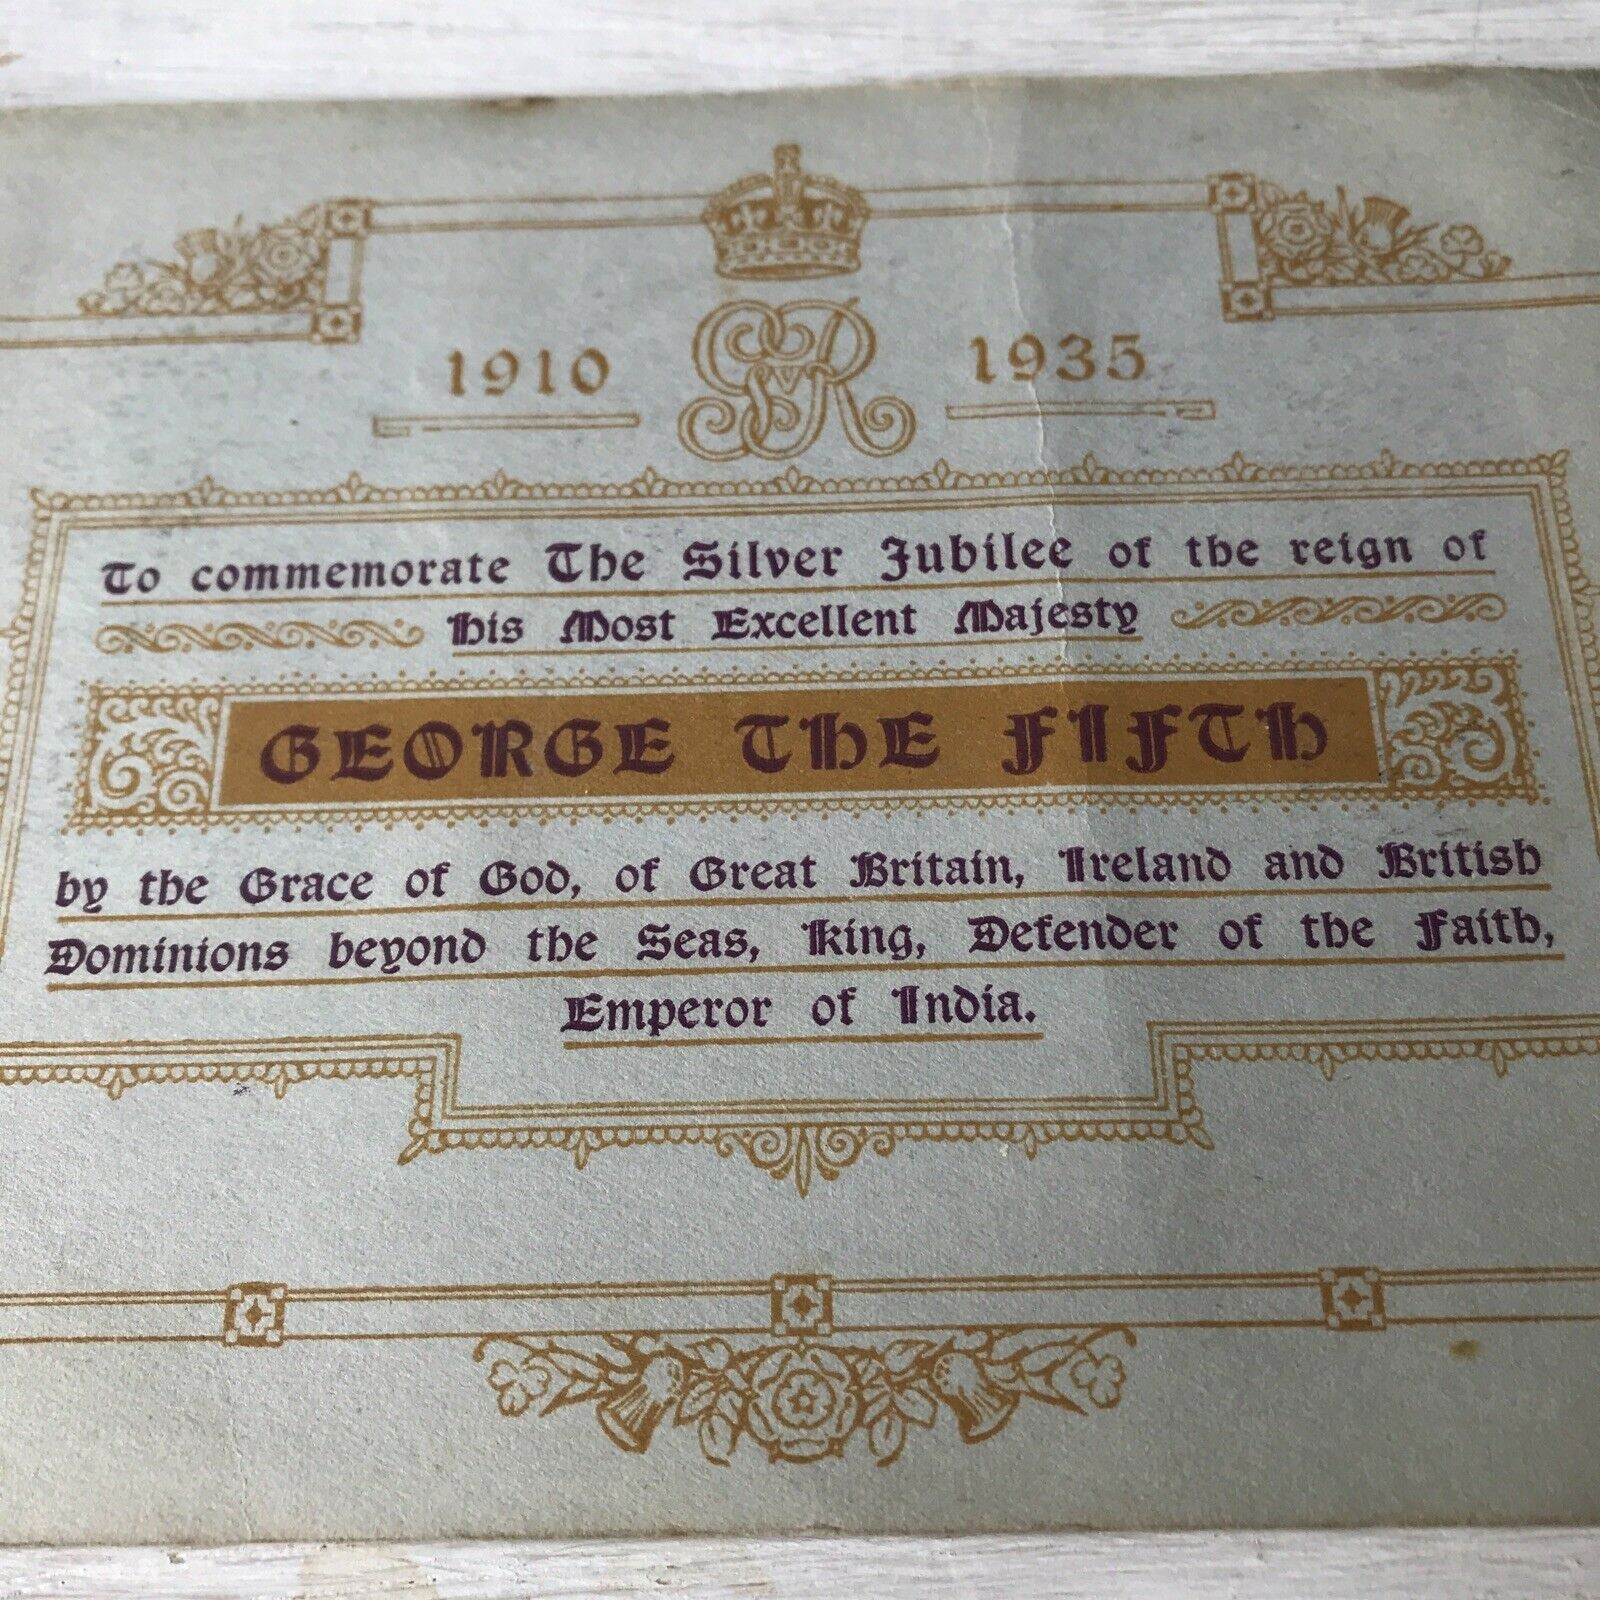 1910 GVR 1935
To commemorate The Silver Jubilee of the reign of
His Most Excellent Majesty
GEORGE THE FIFTH
by the Grace of God, of Great Britain, Ireland and British
Dominions beyond the Seas, King, Defender of the Faith,
Emperor of India.